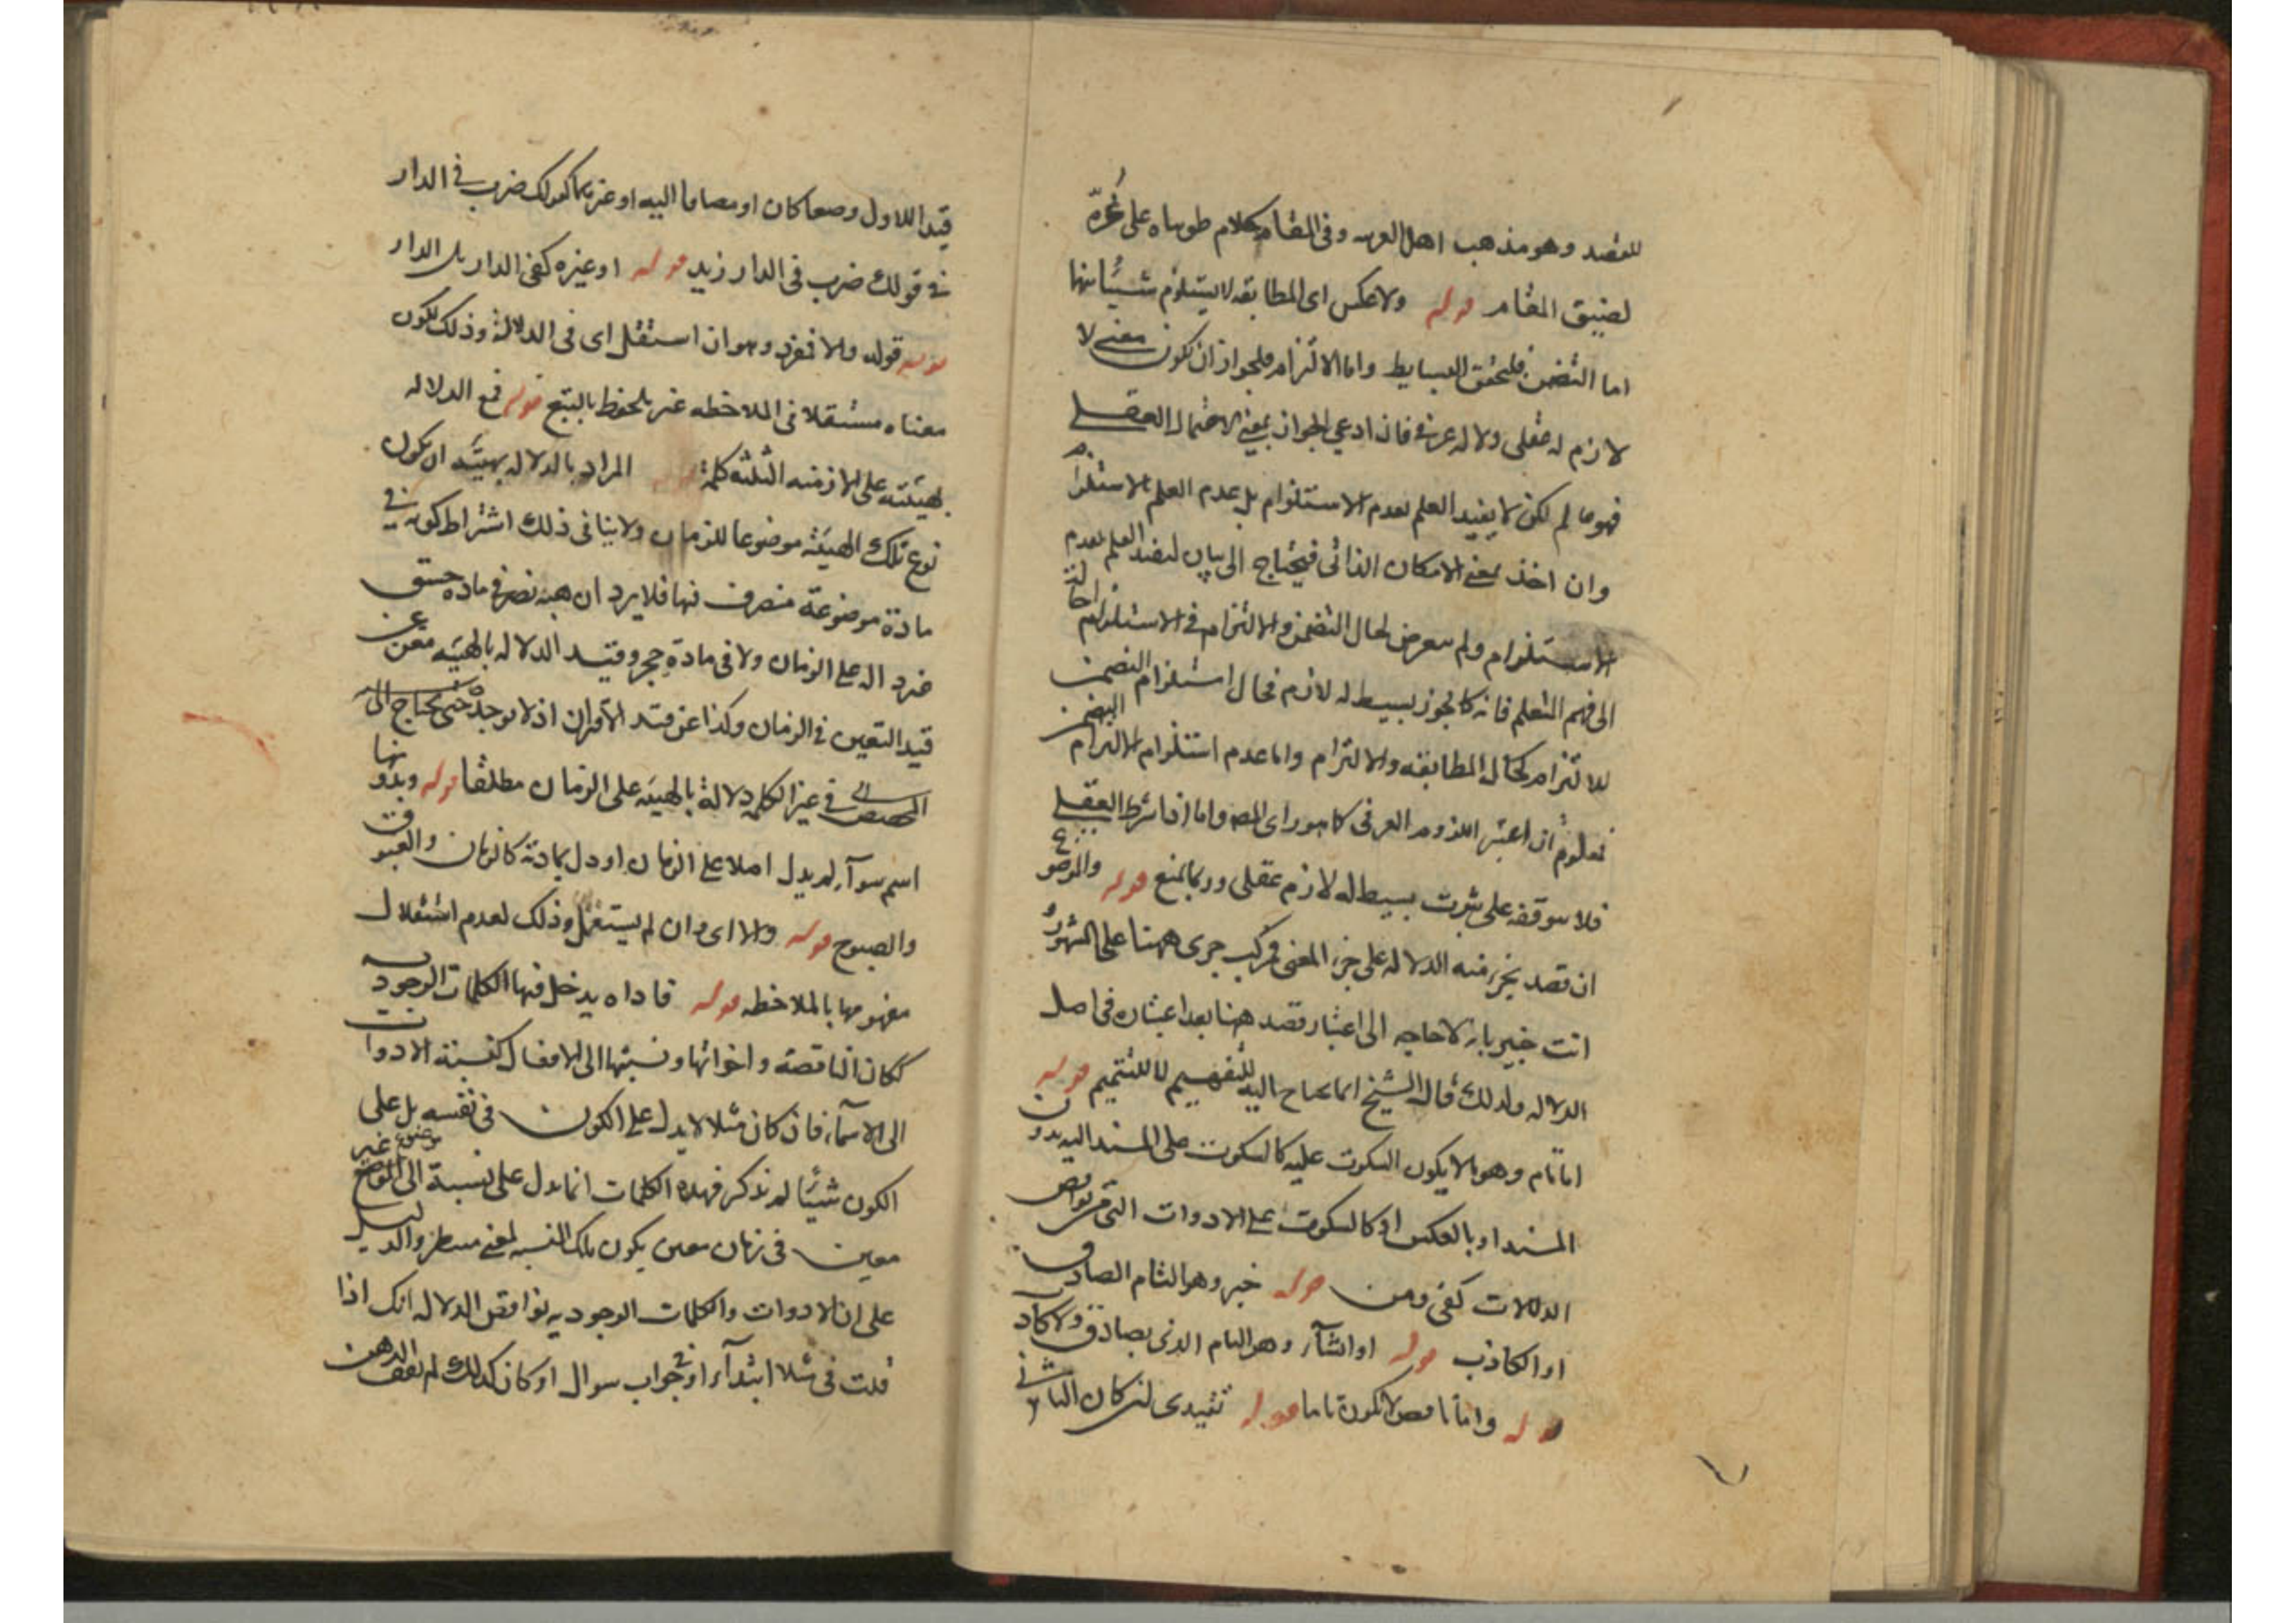 للقصد وهو مذهب اهل العربيه وفى المقام كلام طويناه على غرّه
لضيق المقام قوله ولا عكس اى المطابقه لا يستلزم شيئا منها
اما التضمن فلتحقق البسايط واما الالتزام فلجواز ان تكون معنى لا
لازم له عقلى ولا له عرفى فان ادعى الجواز بمعنى الاحتمال العقلى
فهو ما لم لكن لا يفيد العلم بعدم الاستلزام بل عدم العلم بالاستلزام
وان اخذ بمعنى الامكان الذاتى فيحتاج الى بيان ليفيد العلم بعدم
الاستلزام ولم يتعرض لحال التضمن والالتزام فى الاستلزام احالة
الى فهم المتعلم فانه كما يجوز بسيط له لازم فحال استلزام التضمن
للالتزام كحال المطابقه والالتزام واما عدم استلزام الالتزام التضمن
فمعلوم ان اعتبر اللزوم العرفى كما هو راى المصـ واما اذا شرط العقلى
فلا بتوقفه على ثبوت بسيط له لازم عقلى وربما يمنع قوله والموضوع
ان قصد بجزء منه الدلاله على جزء المعنى فمركب جرى ههنا على المشهور
انت خبير بانه لا حاجه الى اعتبار قصد ههنا بعد اعتباره فى اصل
الدلاله ولذلك قال الشيخ انما يحتاج اليه للتفهيم لا للتتميم قوله
اما تام وهو بالا يكون السكوت عليه كالسكوت على المسند اليه بدون
المسند او بالعكس او كالسكوت على الادوات التى هى نواقص
الدلالات كفى ومن قوله خبر وهو التام الصادق
او الكاذب قوله او انشآء وهو التام الذى بصادق ولا كاذب
قوله واما ناقص لا تكون تاما قوله تقييدى لئن كان الثانى
قيدا للاول وصفا كان او مضافا اليه او غيرهما كقولك ضرب فى الدار
فى قولك ضرب فى الدار زيد قوله او غيره كفى الدار بل الدار
قوله قوله والا فمفرد وهو ان استقل اى فى الدلالة وذلك لكون
معناه مستقلا فى الملاحظه غير ملحوظ بالتبع قوله فمع الدلاله
بهيئته على الازمنه الثلثه كلمة قوله المراد بالدلاله بهيئته ان يكون
نوع تلك الهيئة موضوعا للزمان ولا ينافى ذلك اشتراط كونه فى
مادة موضوعة متصرف فيها فلا يرد ان هيئه نصر فى ماده جسق
غير داله على الزمان ولا فى مادة حجر وقيد الدلاله بالهيئه مغن عن
قيد التعين فى الزمان وكذا عن قيد الاقتران اذ لا يوجد حتى يحتاج الى
المخصص فى غير الكلمه دلالة بالهيئه على الزمان مطلقا قوله وبدونها
اسم سوآء لم يدل اصلا على الزمان او دل بمادته كالزمان والغبوق
والصبوح قوله والا اى وان لم يستقل وذلك لعدم استقلال
مفهومها بالملاحظه قوله فاداه يدخل فيها الكلمات الوجوديه
ككان الناقصة واخواتها ونسبتها الى الافعال كنسبة الادوات
الى الاسماء فان كان مثلا لا يدل على الكون فى نفسه بل على
الكون شيئا لم نذكر فهذه الكلمات انما تدل على نسبة الى موضوع غير
معين فى زمان معين يكون تلك النسبه لمعنى منتظر والدليل
على ان الادوات والكلمات الوجوديه نواقص الدلاله انك اذا
قلت فى مثلا ابتدآء او فى جواب سوال او كان كذلك لم يقف الذهن